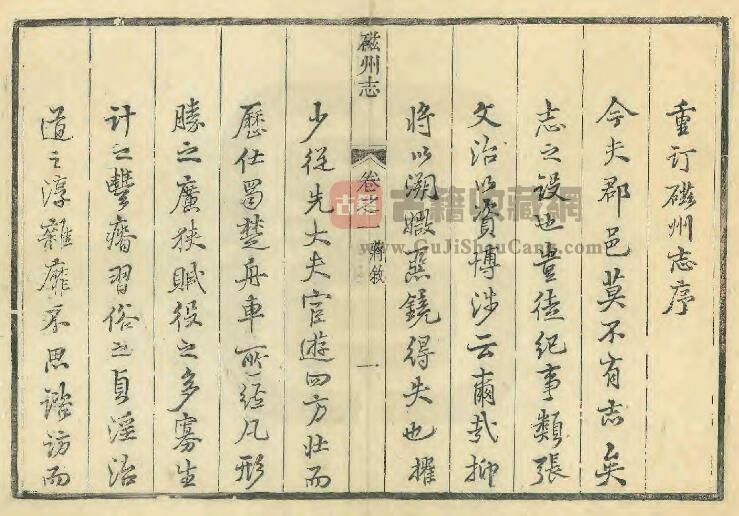 重订磁州志序
今夫郡邑莫不有志矣
志之设也岂徒纪事类張
文治以資博涉云爾哉抑
将以溯媺慝鏡得失也擢
磁州志
卷之一
蔣敘
一
少从先大夫宦遊四方壮而
歷仕蜀楚舟車所經凡形
勝之廣狹賦役之多寡生
计之豐瘠習俗之貞淫治
道之淳雜靡不思諮访而
古籍
古籍收藏網
www.GuJiShouCang.com